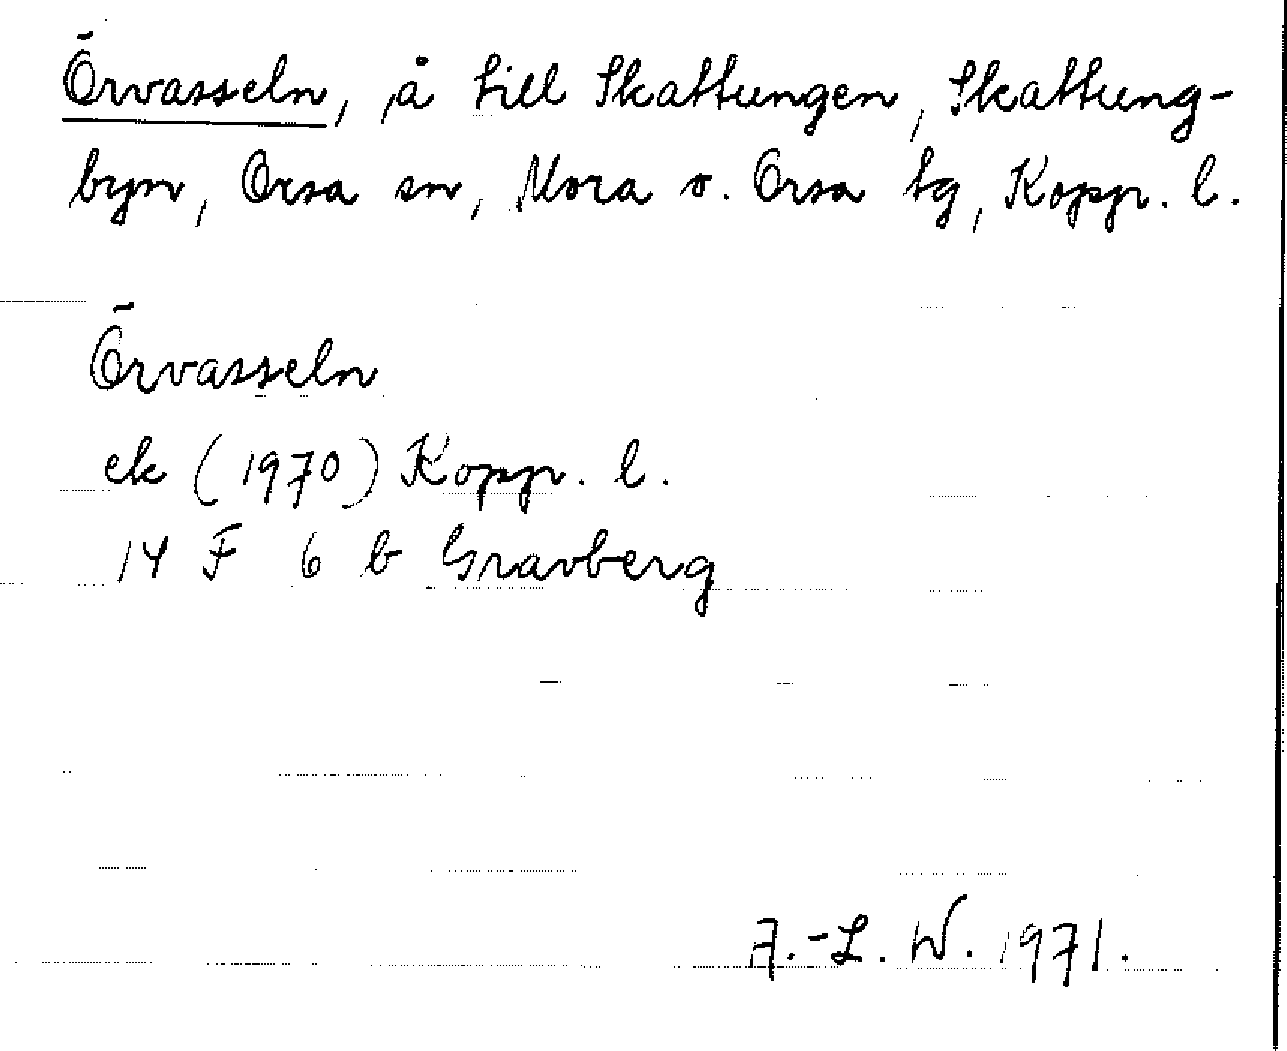 Örvasseln, å till Skattungen, Skattung-
byn, Orsa sn, Mora o. Orsa tg, Kopp. l.
Örvasseln
ek (1970) Kopp. l.
14 F 6 b Gravberg
A.-L. W. 1971.